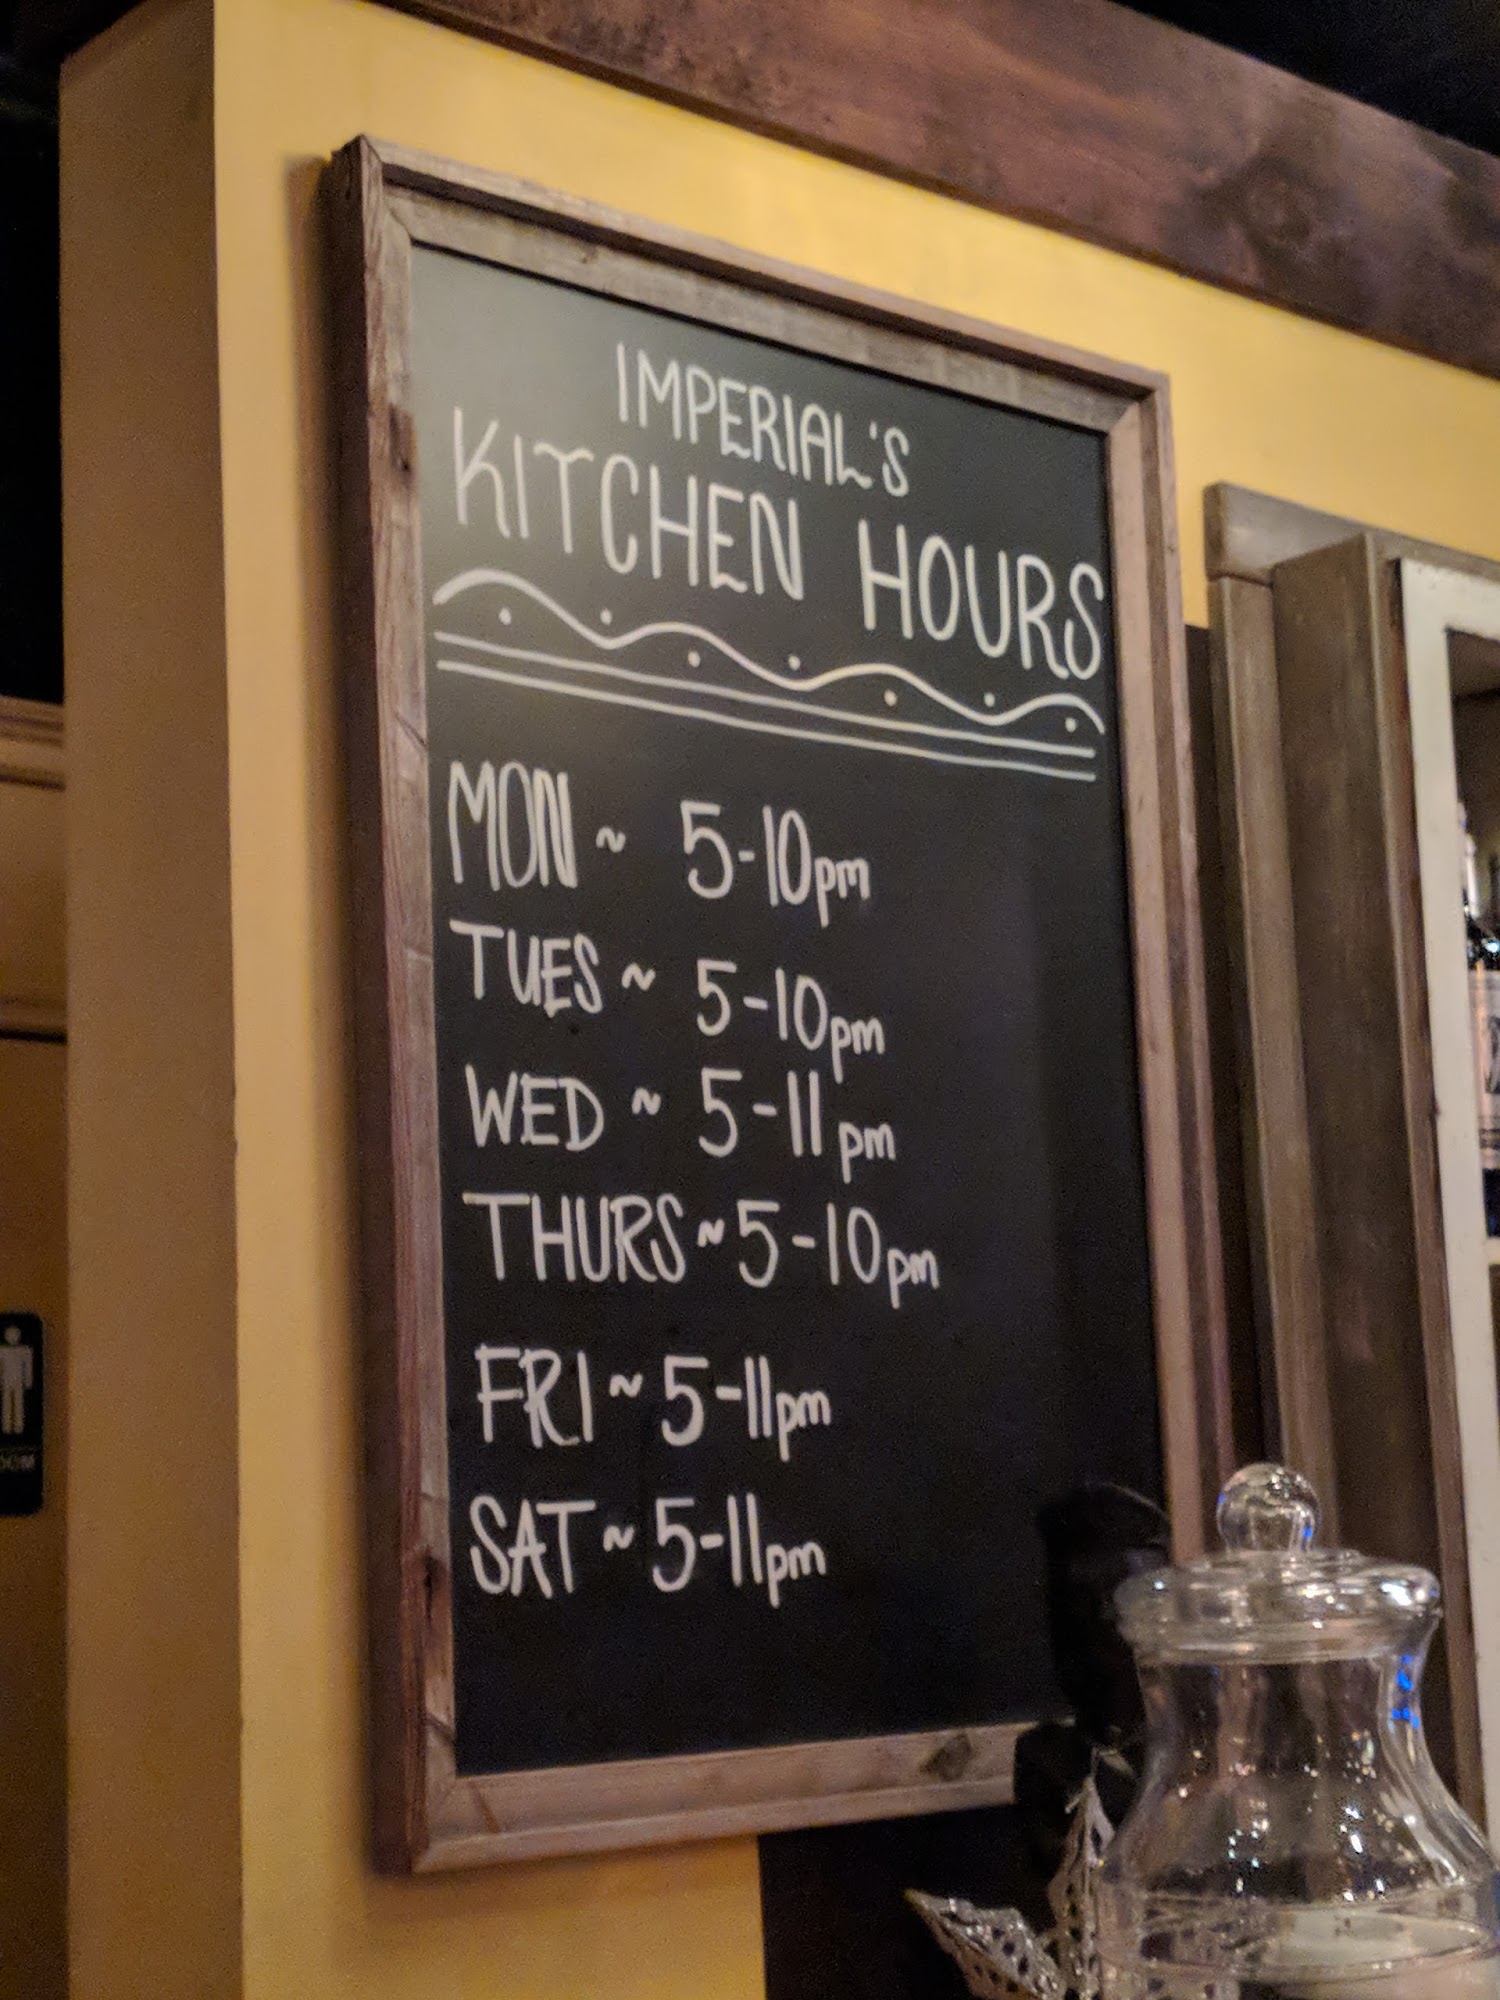 IMPERIAL'S
KITCHEN HOURS
MON ~ 5-10pm
TUES ~ 5-10pm
WED ~ 5-11pm
THURS ~ 5-10pm
FRI ~ 5-11pm
SAT ~ 5-11pm